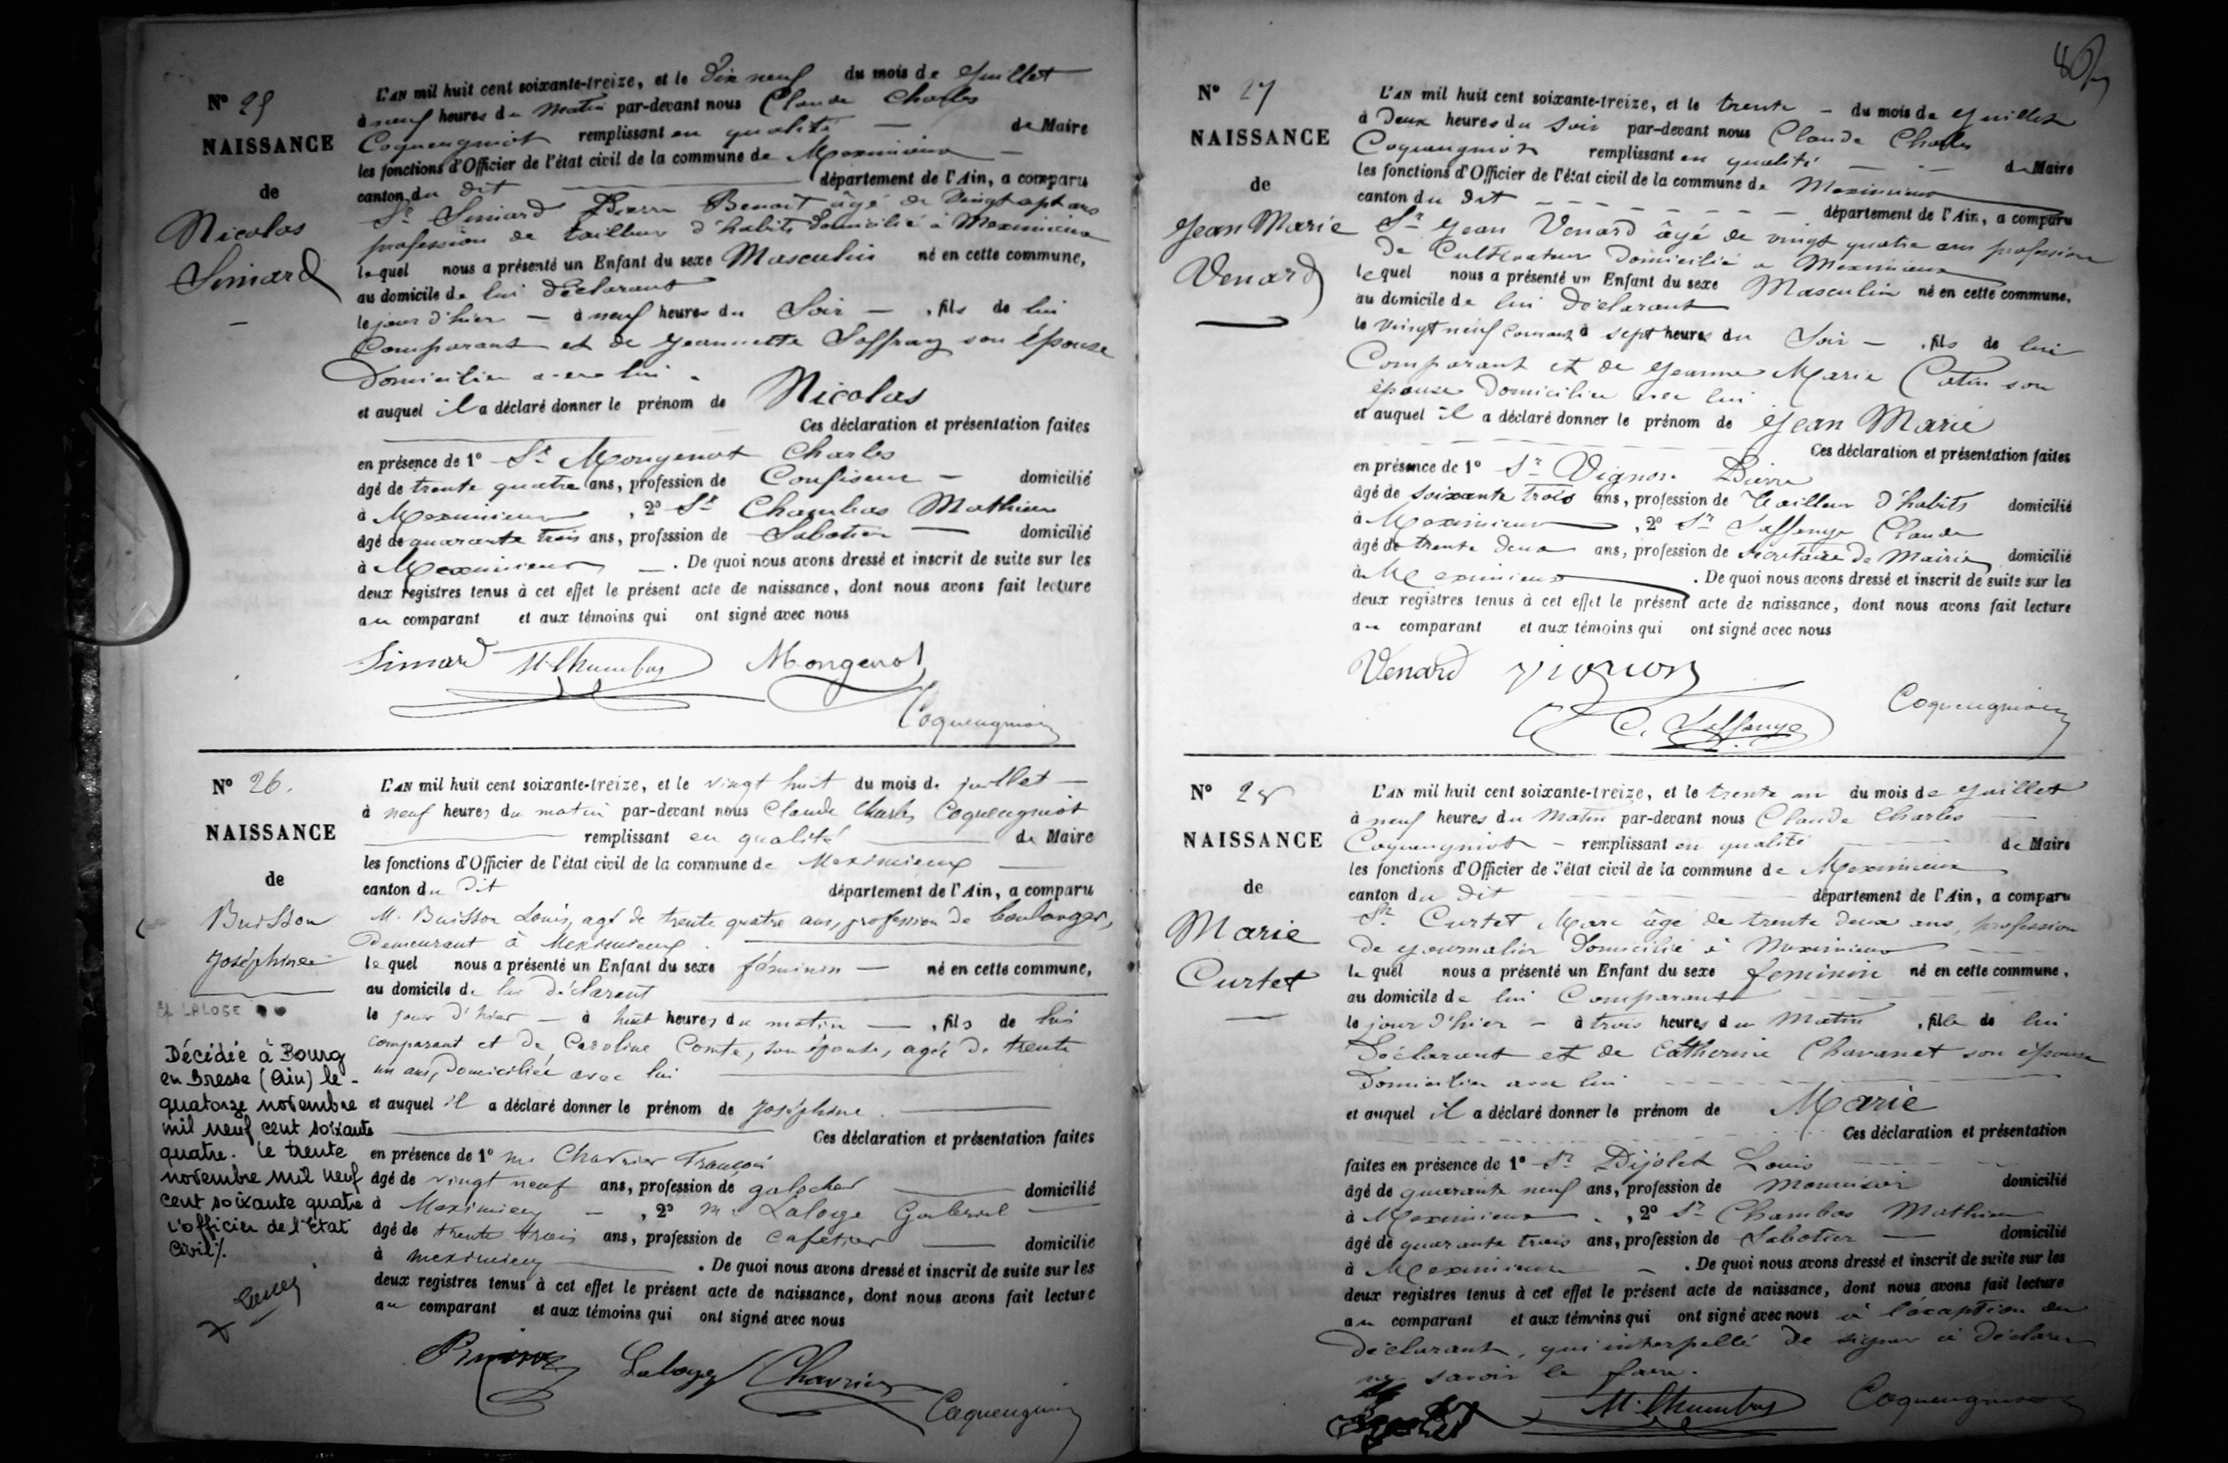 N° 25
NAISSANCE
de
Nicolas
Simard
L'AN mil huit cent soixante-treize, et le dix neuf du mois de Juillet
à neuf heures du matin par-devant nous Claude Charles
Coquengniot remplissant en qualité de Maire
les fonctions d'Officier de l'état civil de la commune de Meximieux
canton du dit département de l'Ain, a comparu
Sr Simard Pierre Benoit âgé de vingt sept ans
profession de tailleur d'habits domicilié à Meximieux
lequel nous a présenté un Enfant du sexe Masculin né en cette commune,
au domicile de lui déclarant
le jour d'hier – à neuf heures du Soir – , fils de lui
Comparant et de Jeannette Soffray son épouse
Domiciliée avec lui
et auquel il a déclaré donner le prénom de Nicolas
Ces déclaration et présentation faites
en présence de 1° Sr Mongenot Charles
âgé de trente quatre ans, profession de Confiseur – domicilié
à Meximieux , 2° Sr Chambas Mathieu
âgé de quarante trois ans, profsssion de Sabotier domicilié
à Meximieux – . De quoi nous avons dressé et inscrit de suite sur les
deux registres tenus à cet effet le présent acte de naissance, dont nous avons fait lecture
au comparant et aux témoins qui ont signé avec nous
Simard M. Chambas Mongenot
Coquengniot
N° 26.
NAISSANCE
de
Buisson
Joséphine
LALOGE
Décédée à Bourg
en Bresse (Ain) le
quatorze novembre
mil neuf cent soixante
quatre. le trente
novembre mil neuf
cent soixante quatre
l'officier de l'Etat
Civil /.
L'AN mil huit cent soixante-treize, et le vingt huit du mois de juillet –
à neuf heures du matin par-devant nous Claude Charles Coquengniot
remplissant en qualité de Maire
les fonctions d'Officier de l'état civil de la commune de Meximieux
canton du dit département de l'Ain, a comparu
M. Buisson Louis, agé de trente quatre ans, profession de boulanger,
Demeurant à Meximieux.
lequel nous a présenté un Enfant du sexe féminin – né en cette commune,
au domicile de lui déclarant
le jour d'hier – à huit heures du matin – , fils de lui
comparant et de Caroline Comte, son épouse, agée de trente
un ans, domiciliée avec lui
et auquel il a déclaré donner le prénom de Joséphine.
Ces déclaration et présentation faites
en présence de 1° Mr Charrier François
âgé de vingt neuf ans, profession de galocher domicilié
à Meximieux – , 2° Mr Laloge Gabriel
âgé de trente trois ans, profession de cafetier domicilié
à meximieux . De quoi nous avons dressé et inscrit de suite sur les
deux registres tenus à cet effet le présent acte de naissance, dont nous avons fait lecture
au comparant et aux témoins qui ont signé avec nous
Buisson Laloge Charrier
Coquengniot
N° 27
NAISSANCE
de
Jean Marie
Venard
L'AN mil huit cent soixante-treize, et le trente – du mois de Juillet
à Deux heures du Soir par-devant nous Claude Charles
Coquengniot remplissant en qualité de Maire
les fonctions d'Officier de l'état civil de la commune de Meximieux
canton du dit département de l'Ain, a comparu
Sr Jean Venard âgé de vingt quatre ans profession
de Cultivateur Domicilié à Meximieux
lequel nous a présenté un Enfant du sexe Masculin né en cette commune,
au domicile de lui Déclarant
le vingt neuf courant à sept heures du Soir – , fils de lui
Comparant et de Jeanne Marie Catin son
épouse Domiciliée avec lui
et auquel il a déclaré donner le prénom de Jean Marie
Ces déclaration et présentation faites
en présence de 1° Sr Vignon Pierre
âgé de soixante trois ans, profession de Tailleur d'habits domicilié
à Meximieux , 2° Sr Laffange Claude
âgé de trente deux ans, profession de secrétaire de Mairie domicilié
à Meximieux . De quoi nous avons dressé et inscrit de suite sur les
deux registres tenus à cet effet le présent acte de naissance, dont nous avons fait lecture
au comparant et aux témoins qui ont signé avec nous
Venard Vignon
C. Laffange Coquengniot
N° 28
NAISSANCE
de
Marie
Curtet
L'AN mil huit cent soixante-treize, et le trente un du mois de Juillet
à neuf heures du Matin par-devant nous Claude Charles
Coquengniot – remplissant en qualité de Maire
les fonctions d'Officier de l'état civil de la commune de Meximieux
canton du dit département de l'Ain, a comparu
Sr Curtet Marc âgé de trente deux ans, profession
de Journalier Domicilié à Meximieux
lequel nous a présenté un Enfant du sexe féminin né en cette commune,
au domicile de lui Comparant
le jour d'hier – à trois heures du Matin , fille de lui
Déclarant et de Catherine Chavanet son épouse
Domiciliée avec lui
et auquel il a déclaré donner le prénom de Marie
Ces déclaration et présentation
faites en présence de 1° Sr Dijolet Louis
âgé de quarante neuf ans, profession de Menuisier domicilié
à Meximieux , 2° Sr Chambas Mathieu
âgé de quarante trois ans, profession de Sabotier – domicilié
à Meximieux – . De quoi nous avons dressé et inscrit de suite sur les
deux registres tenus à cet effet le présent acte de naissance, dont nous avons fait lecture
au comparant et aux témoins qui ont signé avec nous à l'éxception du
déclarant, qui interpellé de signer à déclaré
ne savoir le faire.
M. Chambas Coquengniot